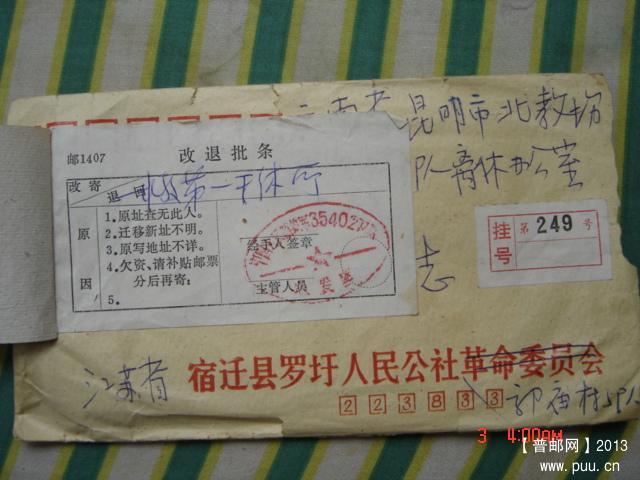 云南省昆明市北教场
队离休办公室
志
邮1407 改退批条
改寄
退回
北教第一干休所
原因
1.原址查无此人。
2.迁移新址不明。
3.原写地址不详。
4.欠资、请补贴邮票
分后再寄:
5.
经手人签章
主管人员
35402
挂号
第 249 号
江苏省 宿迁县罗圩人民公社革命委员会
223833
3 4:00AM
【普邮网】2013
www.puu.cn